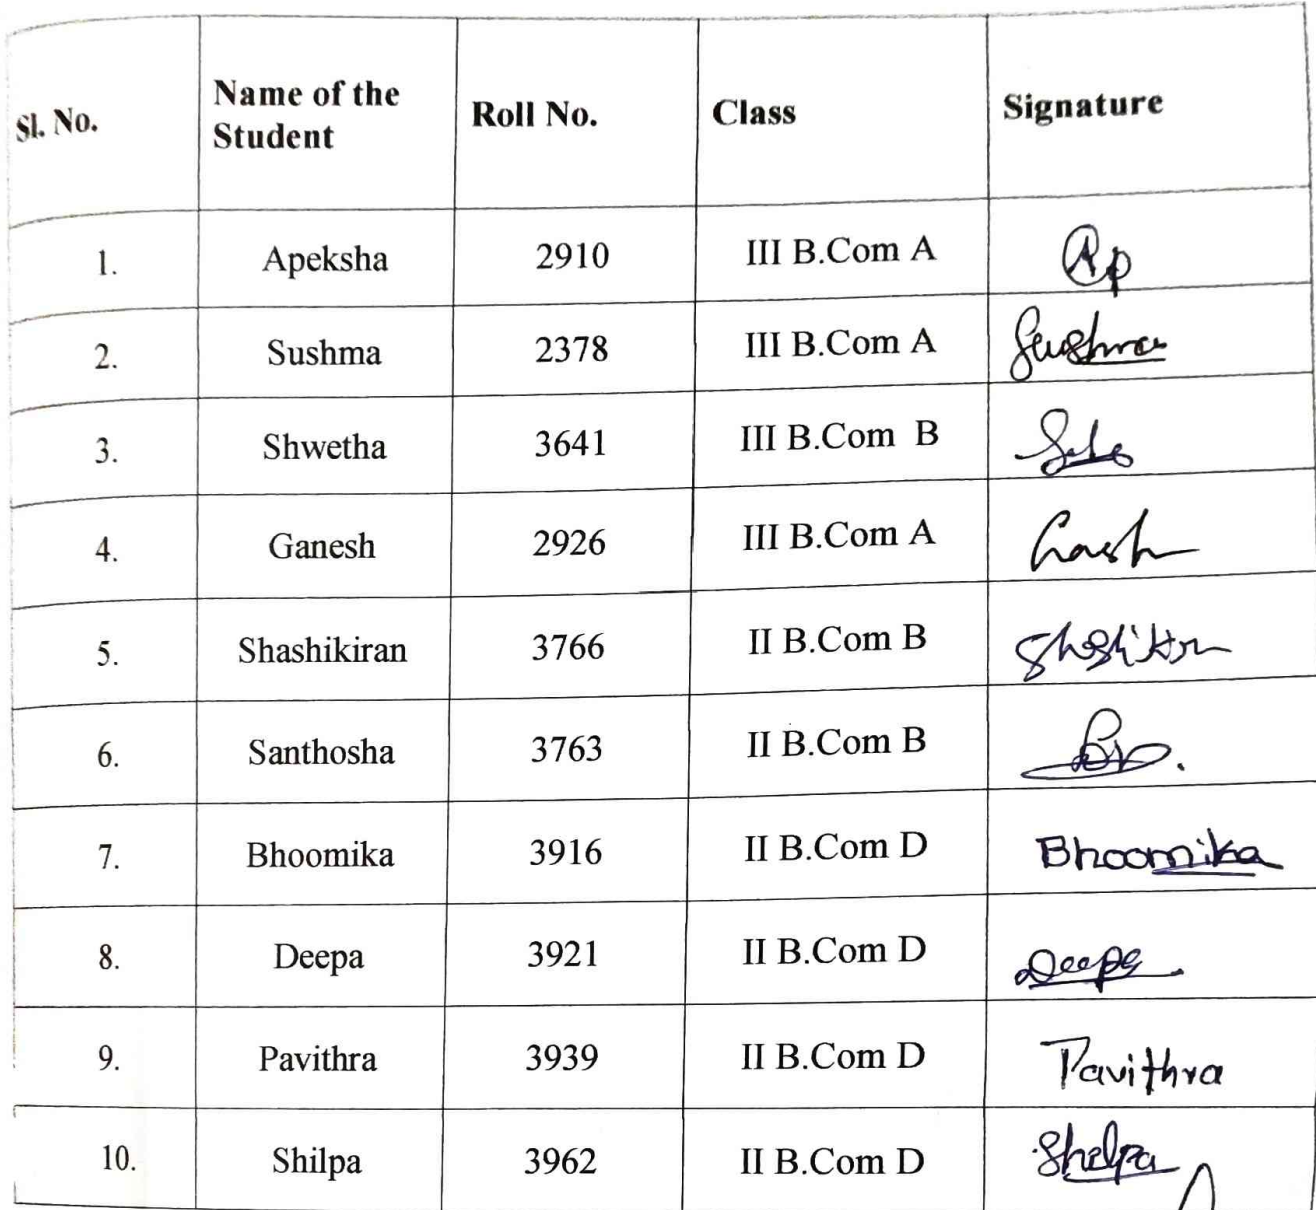 Sl. No. Name of the Student Roll No. Class Signature
1. Apeksha 2910 III B.Com A Ap
2. Sushma 2378 III B.Com A Sushma
3. Shwetha 3641 III B.Com B
4. Ganesh 2926 III B.Com A
5. Shashikiran 3766 II B.Com B
6. Santhosha 3763 II B.Com B
7. Bhoomika 3916 II B.Com D Bhoomika
8. Deepa 3921 II B.Com D Deepa
9. Pavithra 3939 II B.Com D Pavithra
10. Shilpa 3962 II B.Com D Shilpa